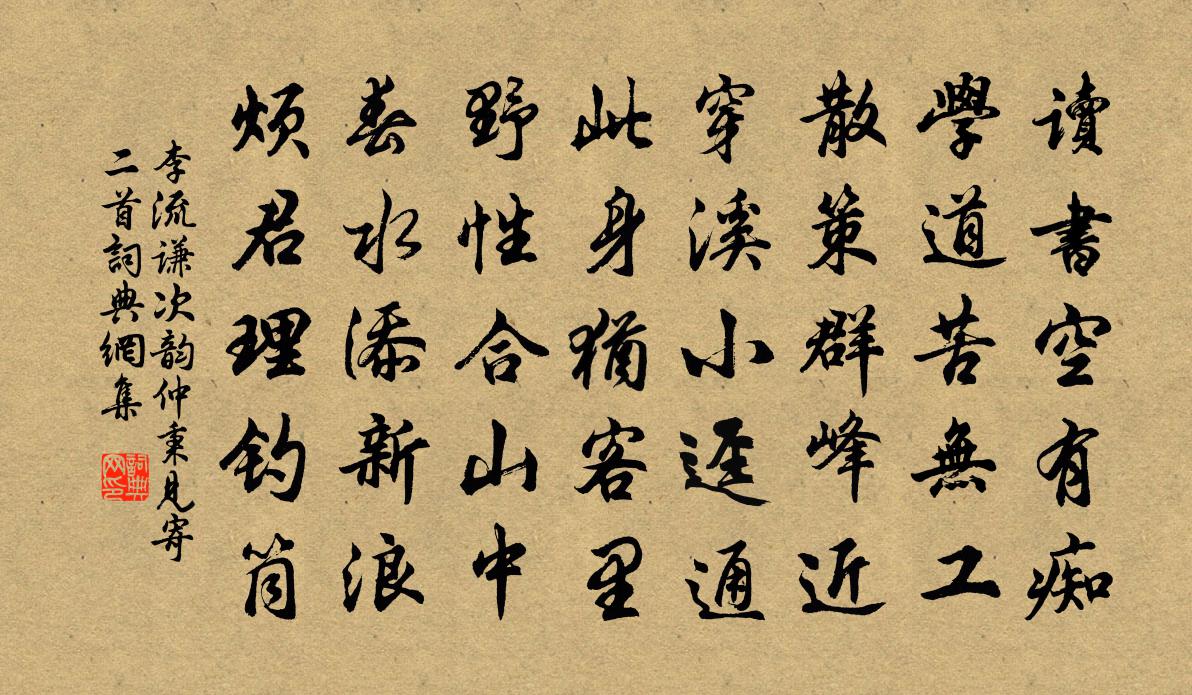 读書空有痴
學道苦無工
散策群峰近
穿溪小迳通
此身犹客里
野性合山中
春水添新浪
烦君理钓筒
李流谦次韵仲秉見寄
二首詞典網集
詞典网印